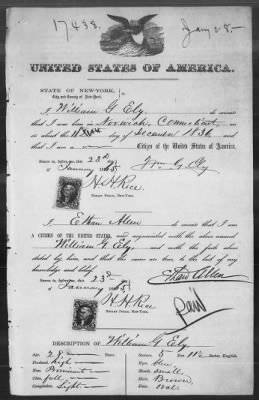 17438. Jany 28 -
UNITED STATES OF AMERICA.
STATE OF NEW-YORK,
City and County of New-York,
I William G. Ely do swear
that I was born in Norwich, Connecticut, on
or about the 11th day of December 1836
that I am a Citizen of the United States of America,
Sworn to, before me, this 23d
day of January 1865 Wm. G. Ely
H. H. Rice
NOTARY PUBLIC, NEW-YORK.
I Ethan Allen do swear that I am
A CITIZEN OF THE UNITED STATES, and acquainted with the above named
William G. Ely and with the facts above
stated by him, and that the same are true to the best of my
knowledge and belief.
Sworn to, before me, this 23d
day of January 1865 Ethan Allen
H. H. Rice
NOTARY PUBLIC, NEW-YORK.
Paid
DESCRIPTION OF William G. Ely
Age, 28 Stature, 5 11½ feet English.
Forehead, high Eyes,
Nose, Prominent Mouth, small
Chin, full Hair, Brown
Complexion, Light Face, Oval